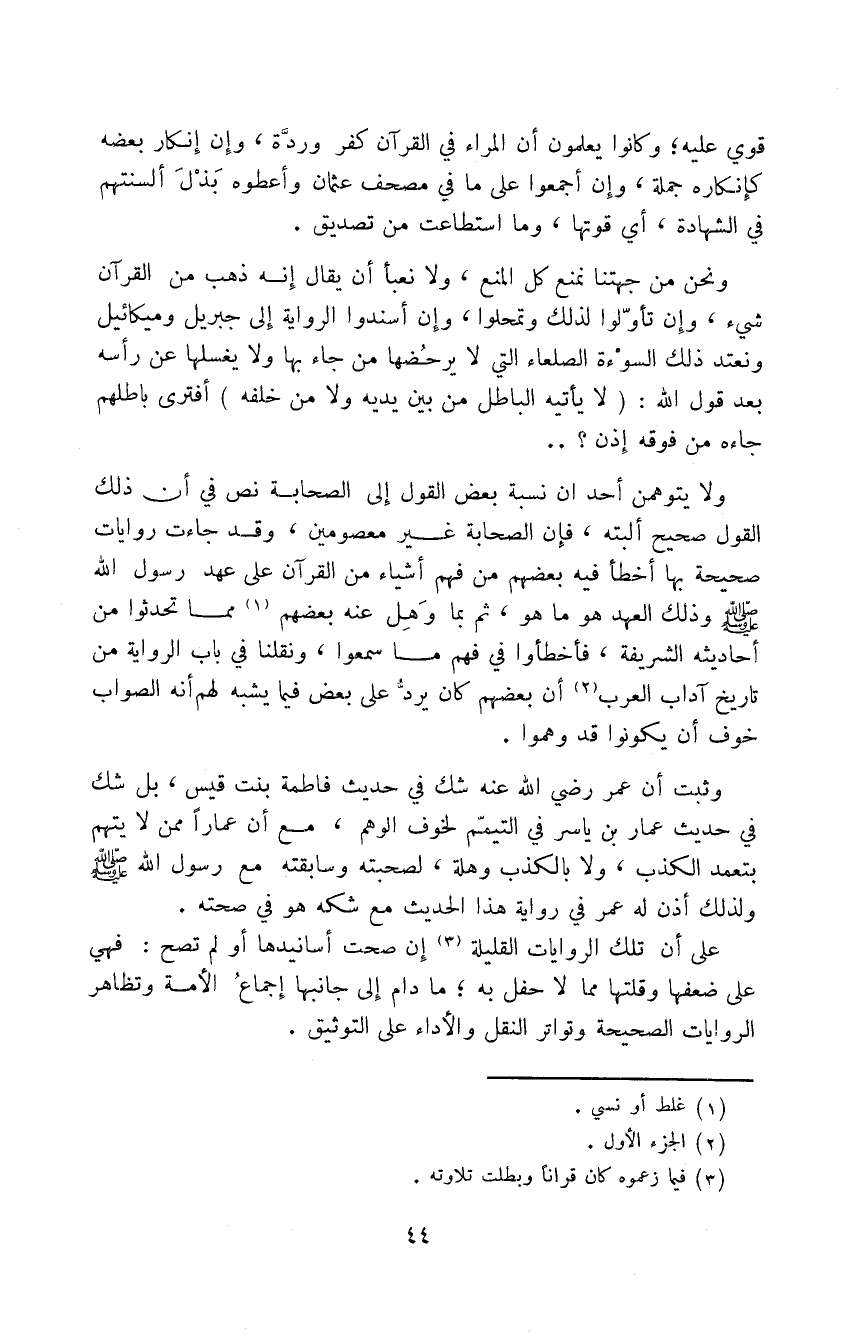 قوي عليه؛ وكانوا يعلمون أن المراء في القرآن كفر وردَّة ، وإن إنكار بعضه
كإنكاره جملة ، وإن أجمعوا على ما في مصحف عثمان وأعطوه بَذْلَ ألسنتهم
في الشهادة ، أي قوتها ، وما استطاعت من تصديق .
ونحن من جهتنا نمنع كل المنع ، ولا نعبأ أن يقال إنه ذهب من القرآن
شيء ، وإن تأوّلوا لذلك وتمحلوا ، وإن أسندوا الرواية إلى جبريل وميكائيل
ونعتد ذلك السوْءة الصلعاء التي لا يرحُضها من جاء بها ولا يغسلها عن رأسه
بعد قول الله : ( لا يأتيه الباطل من بين يديه ولا من خلفه ) أفترى باطلهم
جاءه من فوقه إذن ؟ ..
ولا يتوهمن أحد ان نسبة بعض القول إلى الصحابة نص في أن ذلك
القول صحيح ألبته ، فإن الصحابة غير معصومين ، وقد جاءت روايات
صحيحة بها أخطأ فيه بعضهم من فهم أشياء من القرآن على عهد رسول الله
ﷺ وذلك العهد هو ما هو ، ثم بما وَهِل عنه بعضهم (١) مما تحدثوا من
أحاديثه الشريفة ، فأخطأوا في فهم ما سمعوا ، ونقلنا في باب الرواية من
تاريخ آداب العرب(٢) أن بعضهم كان يردُّ على بعض فيما يشبه لهم أنه الصواب
خوف أن يكونوا قد وهموا .
وثبت أن عمر رضي الله عنه شك في حديث فاطمة بنت قيس ، بل شك
في حديث عمار بن ياسر في التيمّم لخوف الوهم ، مع أن عماراً ممن لا يتهم
بتعمد الكذب ، ولا بالكذب وهلة ، لصحبته وسابقته مع رسول الله ﷺ
ولذلك أذن له عمر في رواية هذا الحديث مع شكه هو في صحته .
على أن تلك الروايات القليلة (٣) إن صحت أسانيدها أو لم تصح : فهي
على ضعفها وقلتها مما لا حفل به ؛ ما دام إلى جانبها إجماعُ الأمة وتظاهر
الروايات الصحيحة وتواتر النقل والأداء على التوثيق .
(١) غلط أو نسي .
(٢) الجزء الأول .
(٣) فيما زعموه كان قراناً وبطلت تلاوته .
٤٤